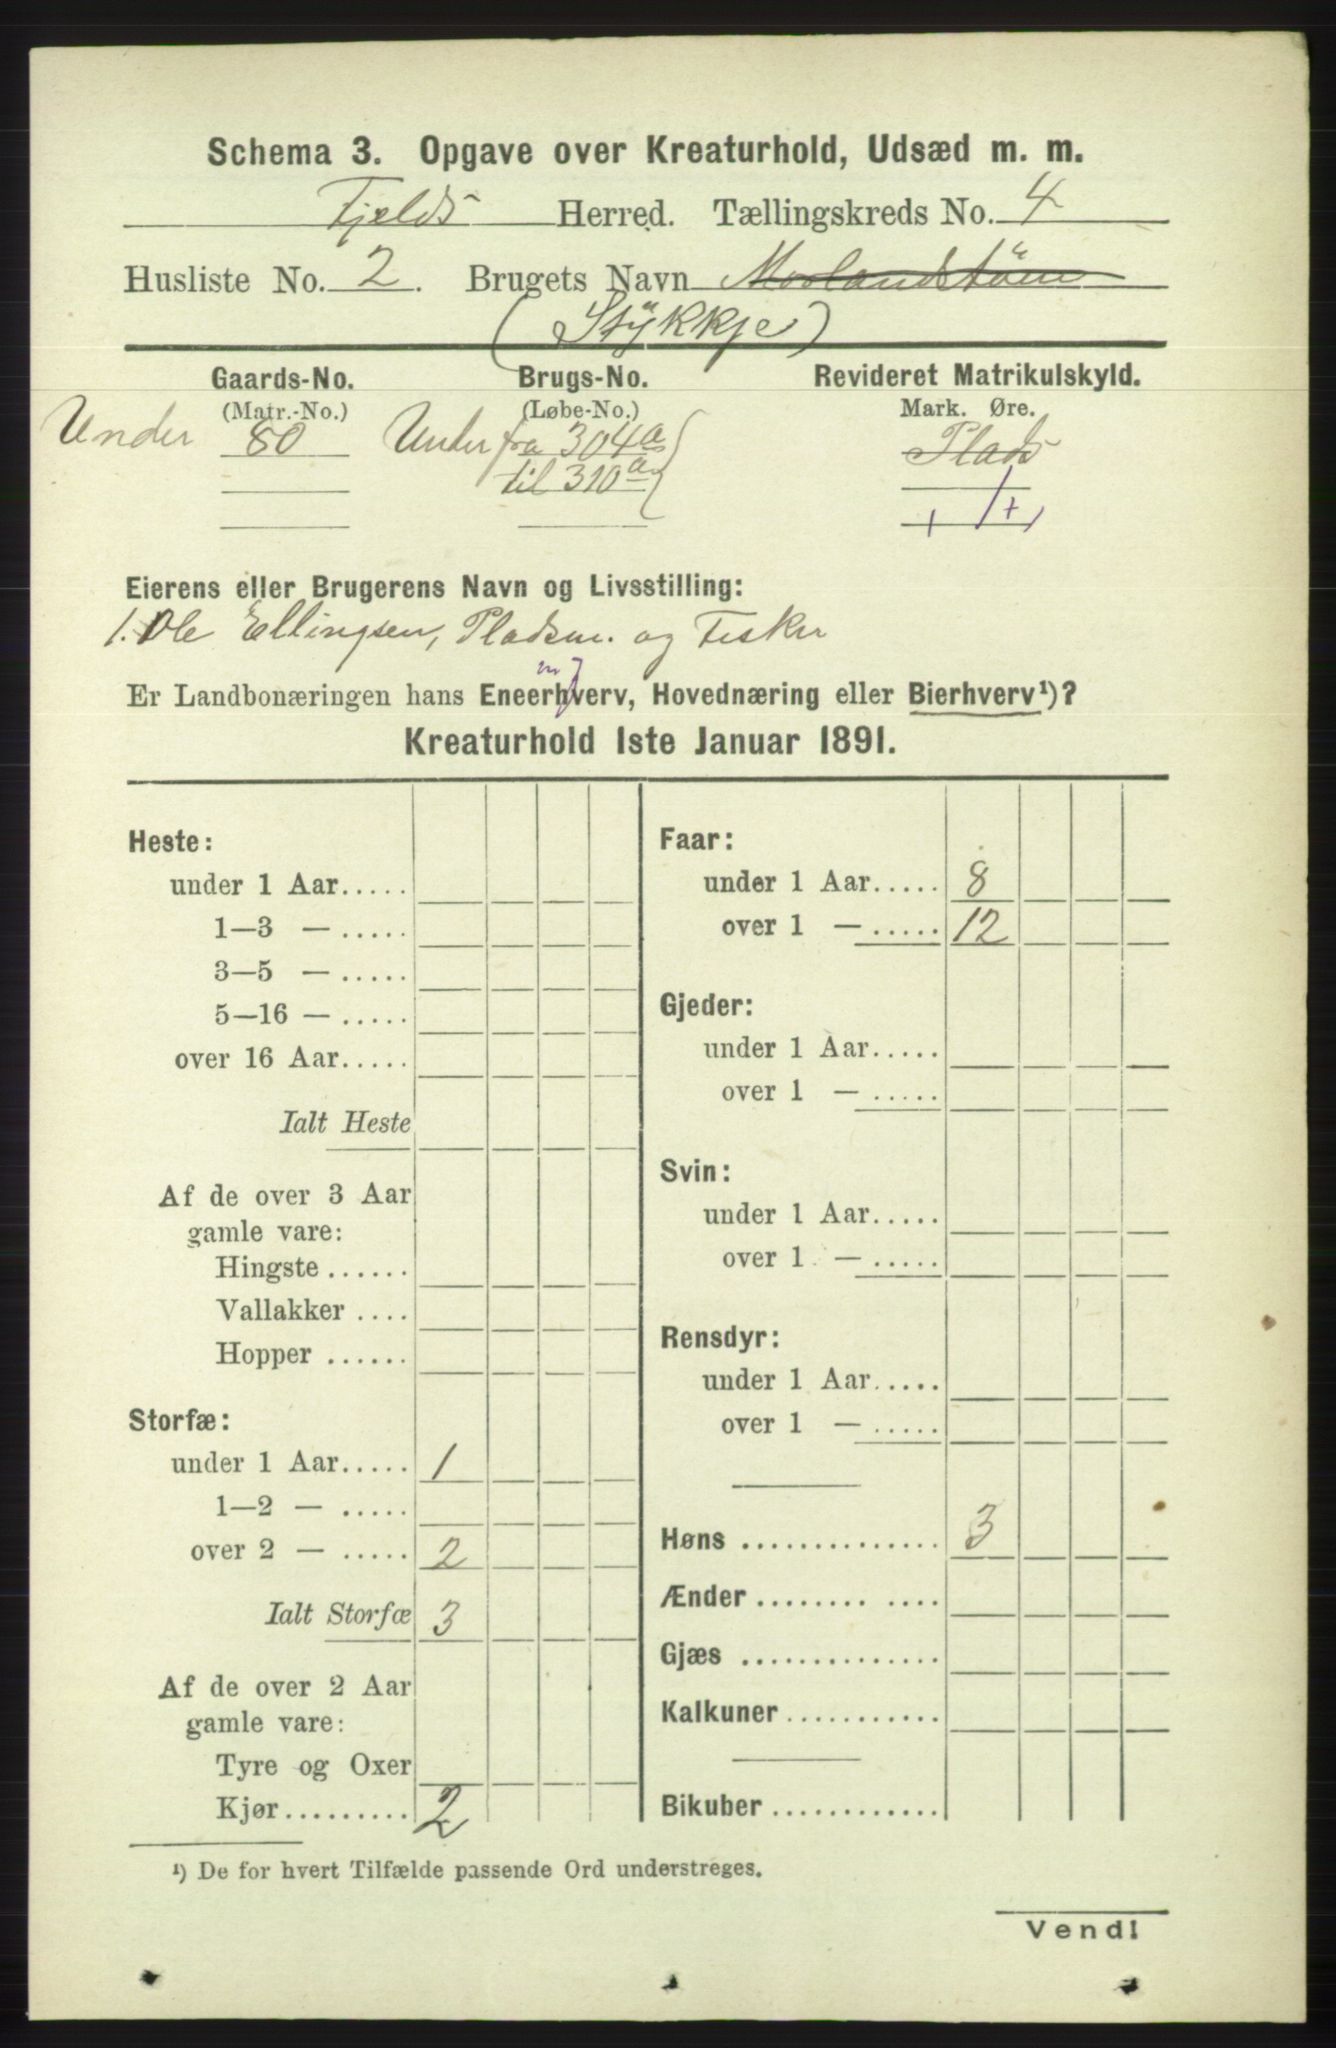 Schema 3. Opgave over Kreaturhold, Udsæd m. m.
Fjelds Herred. Tællingskreds No. 4
Husliste No. 2. Brugets Navn Morlandstöen
(Stÿkkje)
Gaards-No. Brugs-No. Revideret Matrikulskyld.
(Matr.-No.) (Løbe-No.) Mark. Øre.
Under 80 Under fra 304a Plads
til 310a
Eierens eller Brugerens Navn og Livsstilling:
1. Ole Ellingsen, Pladsm. og Fisker
Er Landbonæringen hans Eneerhverv, Hovednæring eller Bierhverv¹)?
Kreaturhold 1ste Januar 1891.
Heste:
under 1 Aar.....
1—3 — .....
3—5 — .....
5—16 — .....
over 16 Aar.....
Ialt Heste
Af de over 3 Aar
gamle vare:
Hingste ......
Vallakker ....
Hopper ......
Storfæ:
under 1 Aar..... 1
1—2 — .....
over 2 — ..... 2
Ialt Storfæ 3
Af de over 2 Aar
gamle vare:
Tyre og Oxer
Kjør......... 2
Faar:
under 1 Aar..... 8
over 1 — ..... 12
Gjeder:
under 1 Aar.....
over 1 — .....
Svin:
under 1 Aar.....
over 1 — .....
Rensdyr:
under 1 Aar.....
over 1 — .....
Høns .............. 3
Ænder ........ ....
Gjæs ..............
Kalkuner ...........
Bikuber ............
¹) De for hvert Tilfælde passende Ord understreges.
Vend!